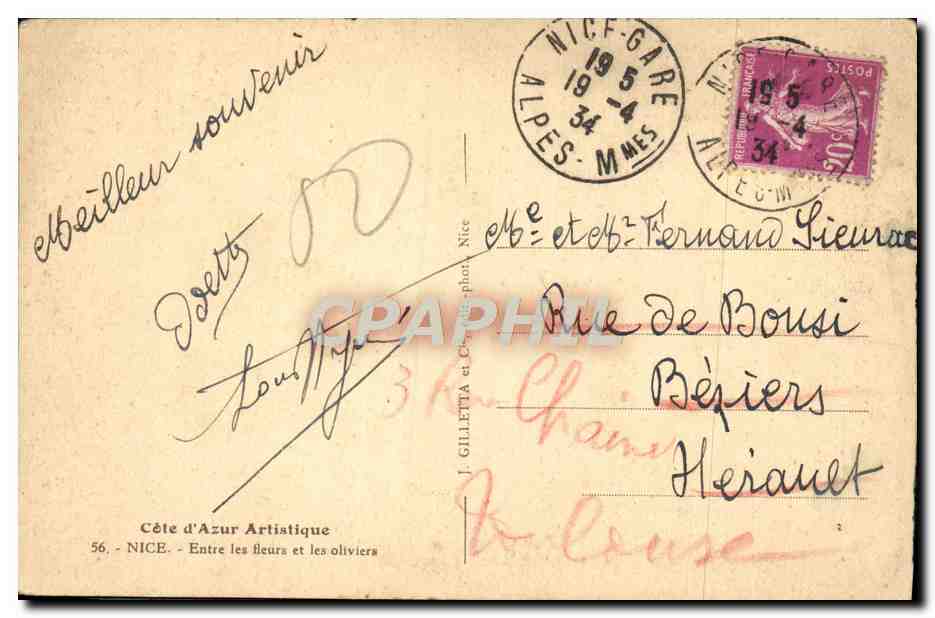 Meilleur souvenir
Odette
NICE-GARE
19 5
19 -4
34
ALPES-MMES
REPUBLIQUE FRANÇAISE
POSTES
19 5
-4
34
Me et Mr Fernand Sieurac
Rue de Bousi
Béziers
Hérault
3 Rue
Toulouse
J. GILLETTA et Cie, phot., Nice
CPAPHIL
Côte d'Azur Artistique
56. - NICE. - Entre les fleurs et les oliviers